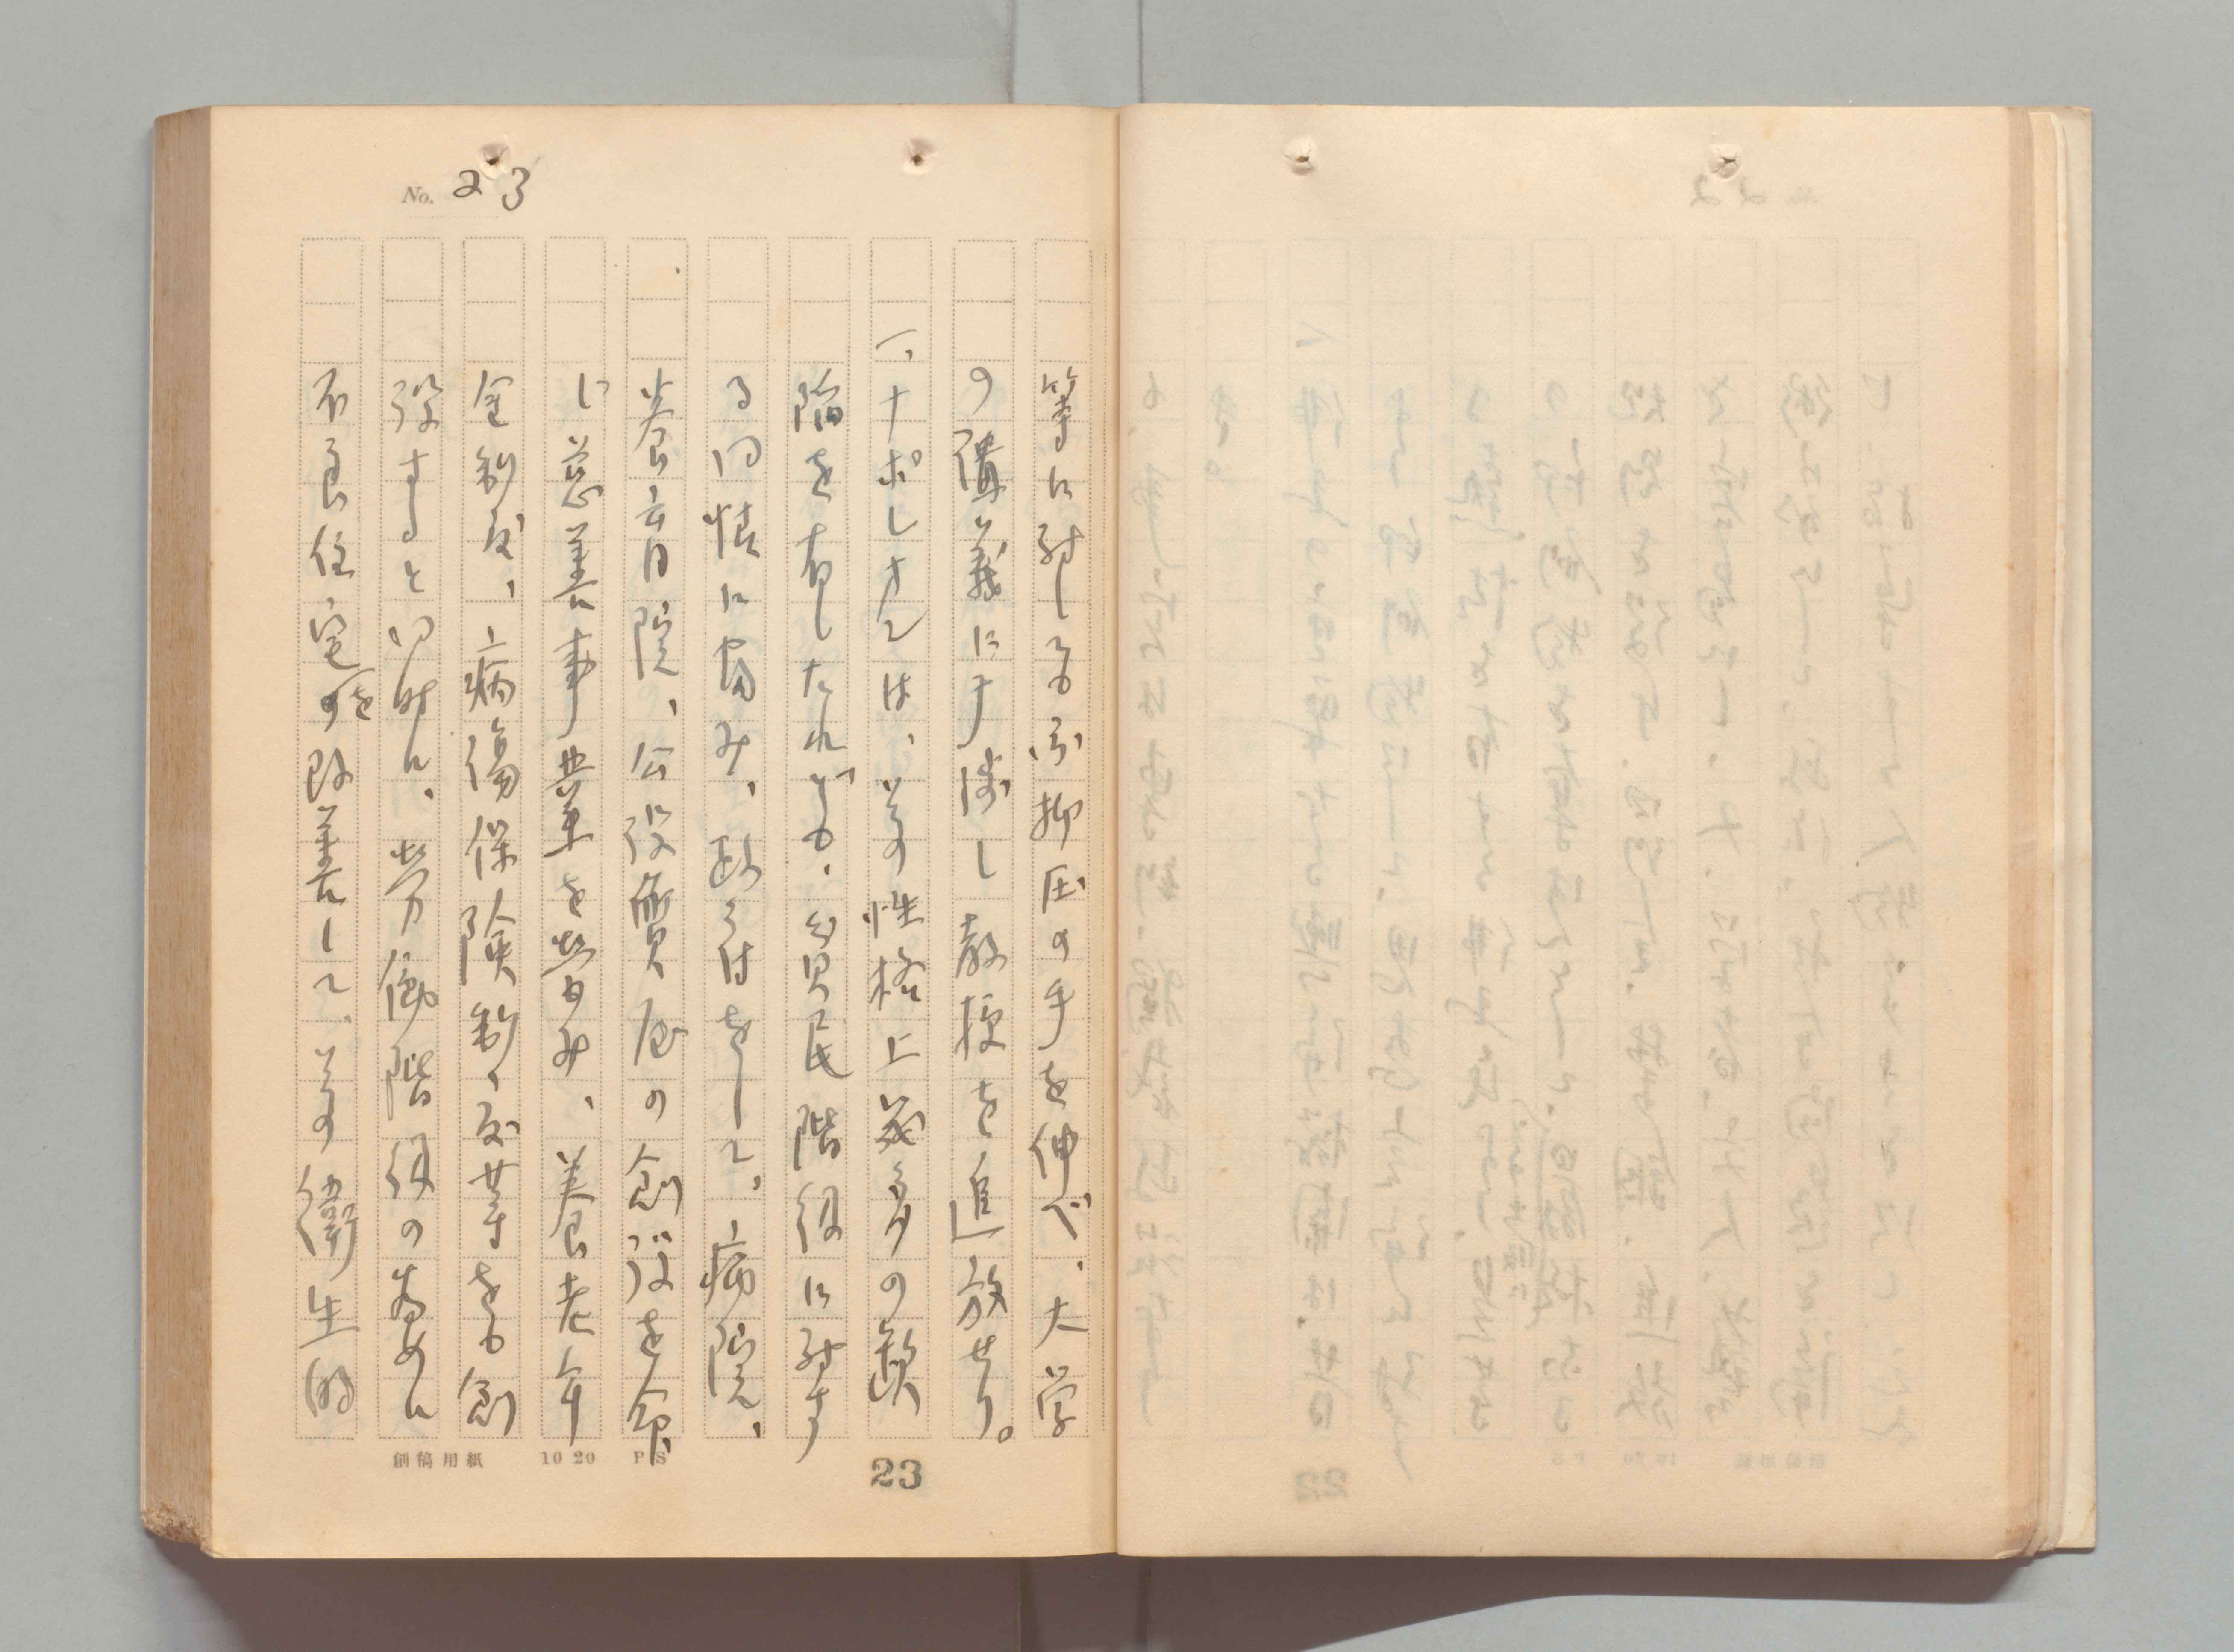 No. 23
等に対しても亦抑圧の手を伸べ、大学
の講義に干渉し教授を追放せり。
一、ナポレオンは、其の性格上幾多の欠
陥を有したれども、貧民階級に対す
る同情に富み、政府をして、病院、
養育院、公設質屋の創設を命
じ慈善事業を営み、養老年
金制度、病傷保険制度等をも創
設すると同時に、労働階級の為めに
不良住宅を改善して、其の衛生的
創稿用紙 10 20 PS
23